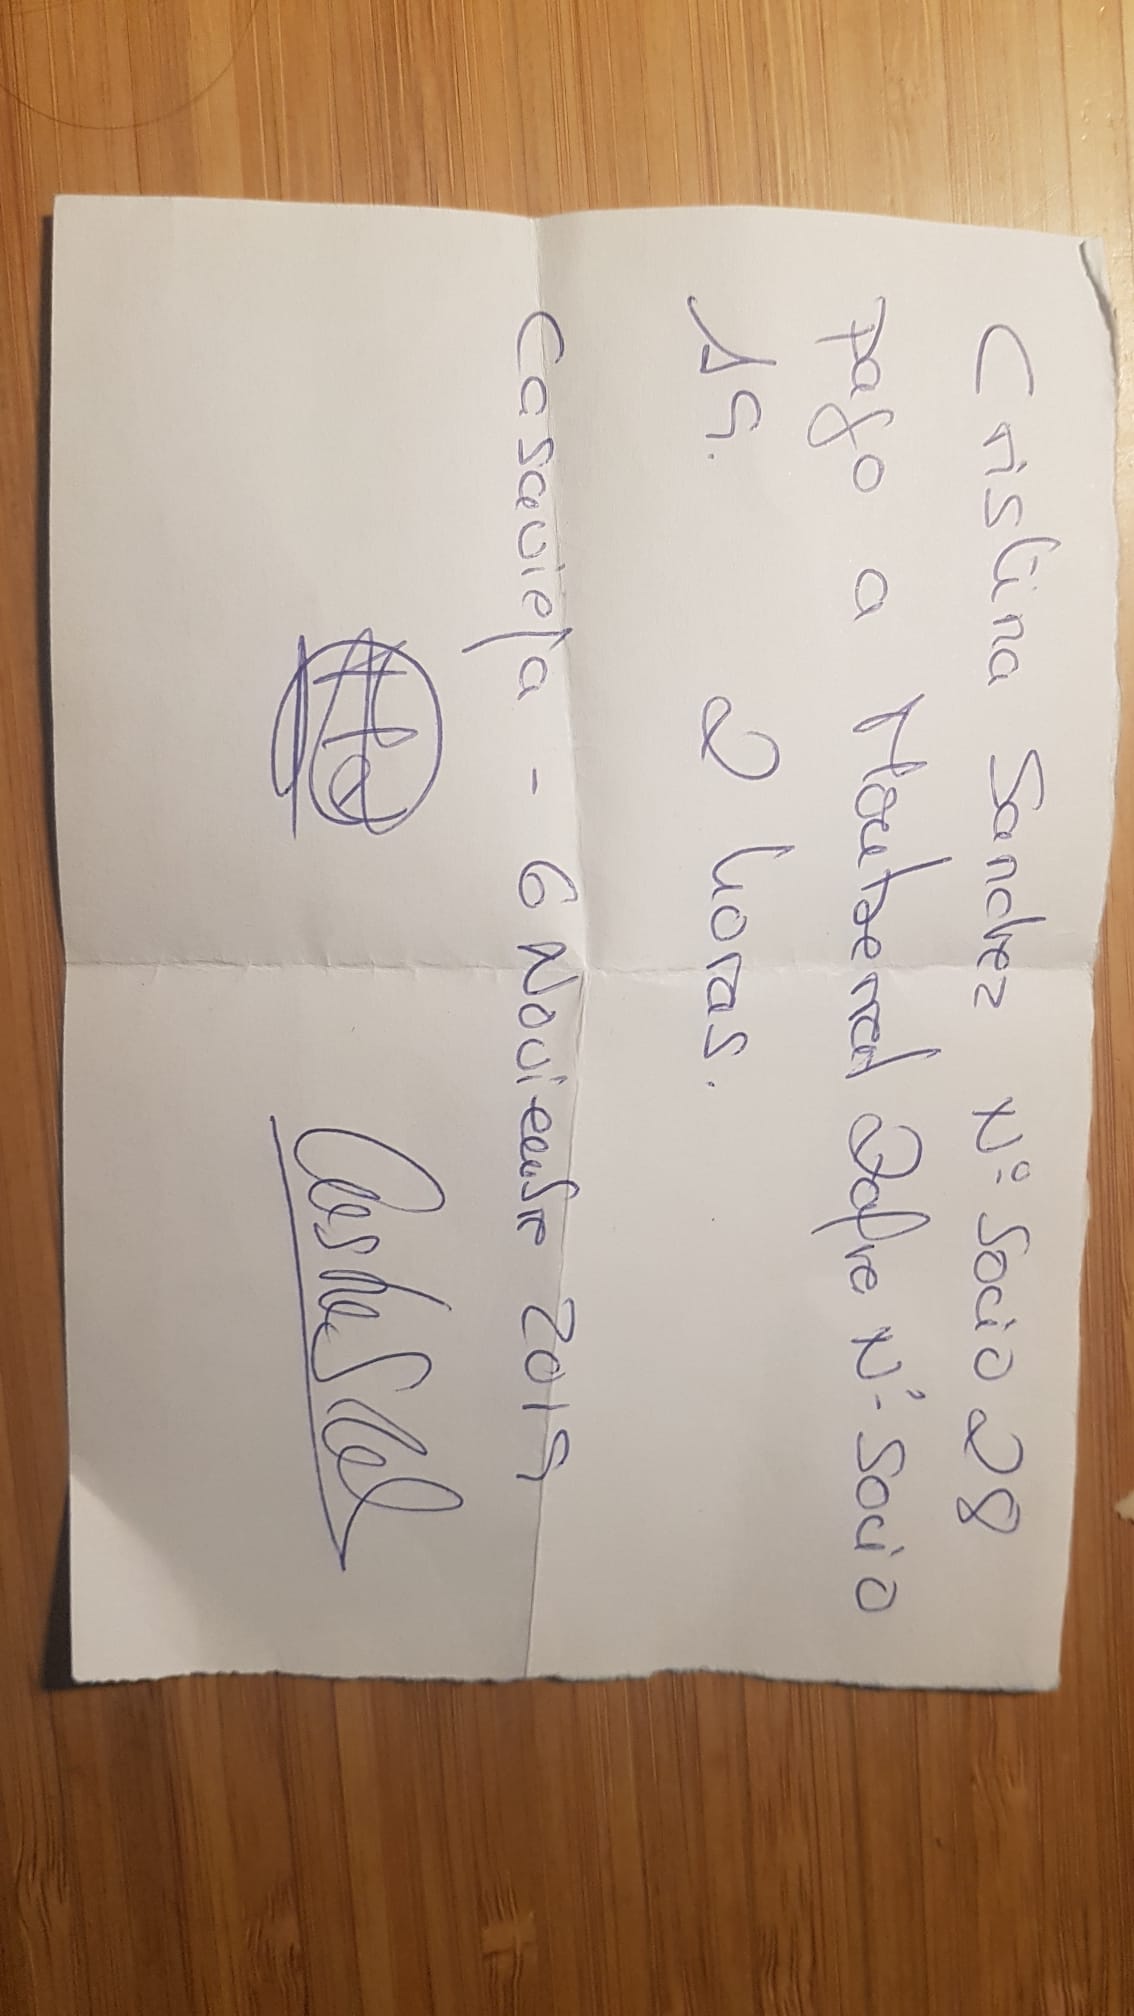 Cristina Sanchez Nº Socio 28
pago a Montserrat Jofre Nº Socio
19. 2 horas.
Casavieja - 6 Noviembre 2019